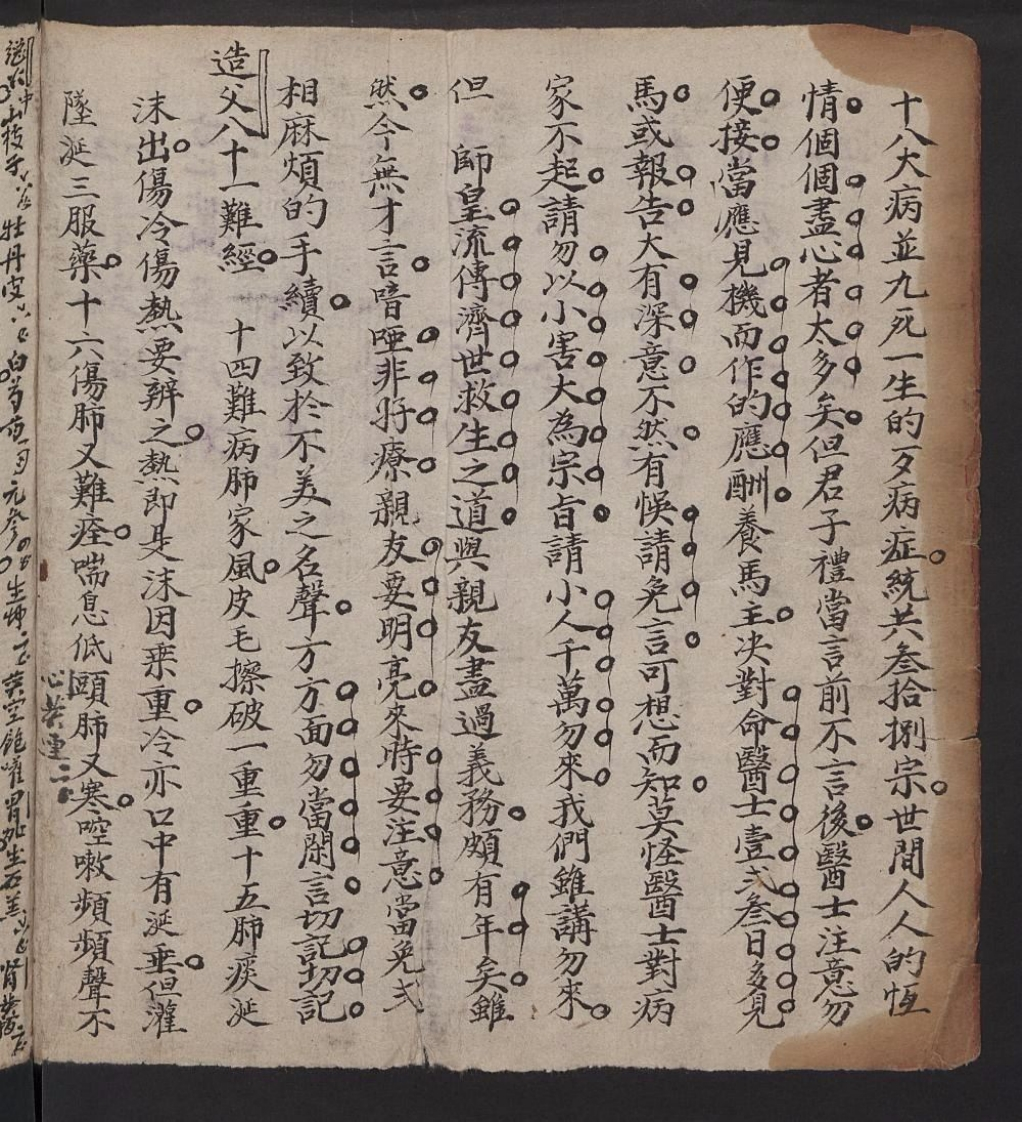 十八大病並九死一生的歹病症統共叁拾捌宗世間人人的恆
情個個盡心者太多矣但君子禮當言前不言後醫士注意勿
便接當應見機而作的應酬養馬主决對命醫士壹弍叁日多見
馬或報告大有深意不然有悮請免言可想而知莫怪醫士對病
家不起請勿以小害大為宗旨請小人千萬勿來我們雖講勿來
但師皇流傳濟世救生之道與親友盡過義務頗有年矣雖
然今無才言喑啞非將療親友要明亮來時要注意當免弍
相麻煩的手續以致於不美之名聲方方面勿當閑言切記切記
造父八十一難經 十四難病肺家風皮毛擦破一重重十五肺痰涎
沫出傷冷傷熱要辨之熱即是沫因乘重冷亦口中有涎垂但灌
墜涎三服藥十六傷肺又難痊喘息低頭肺又寒啌嗽頻頻聲不
心黃連二
山枝子 牡丹皮 白芍 元參 生